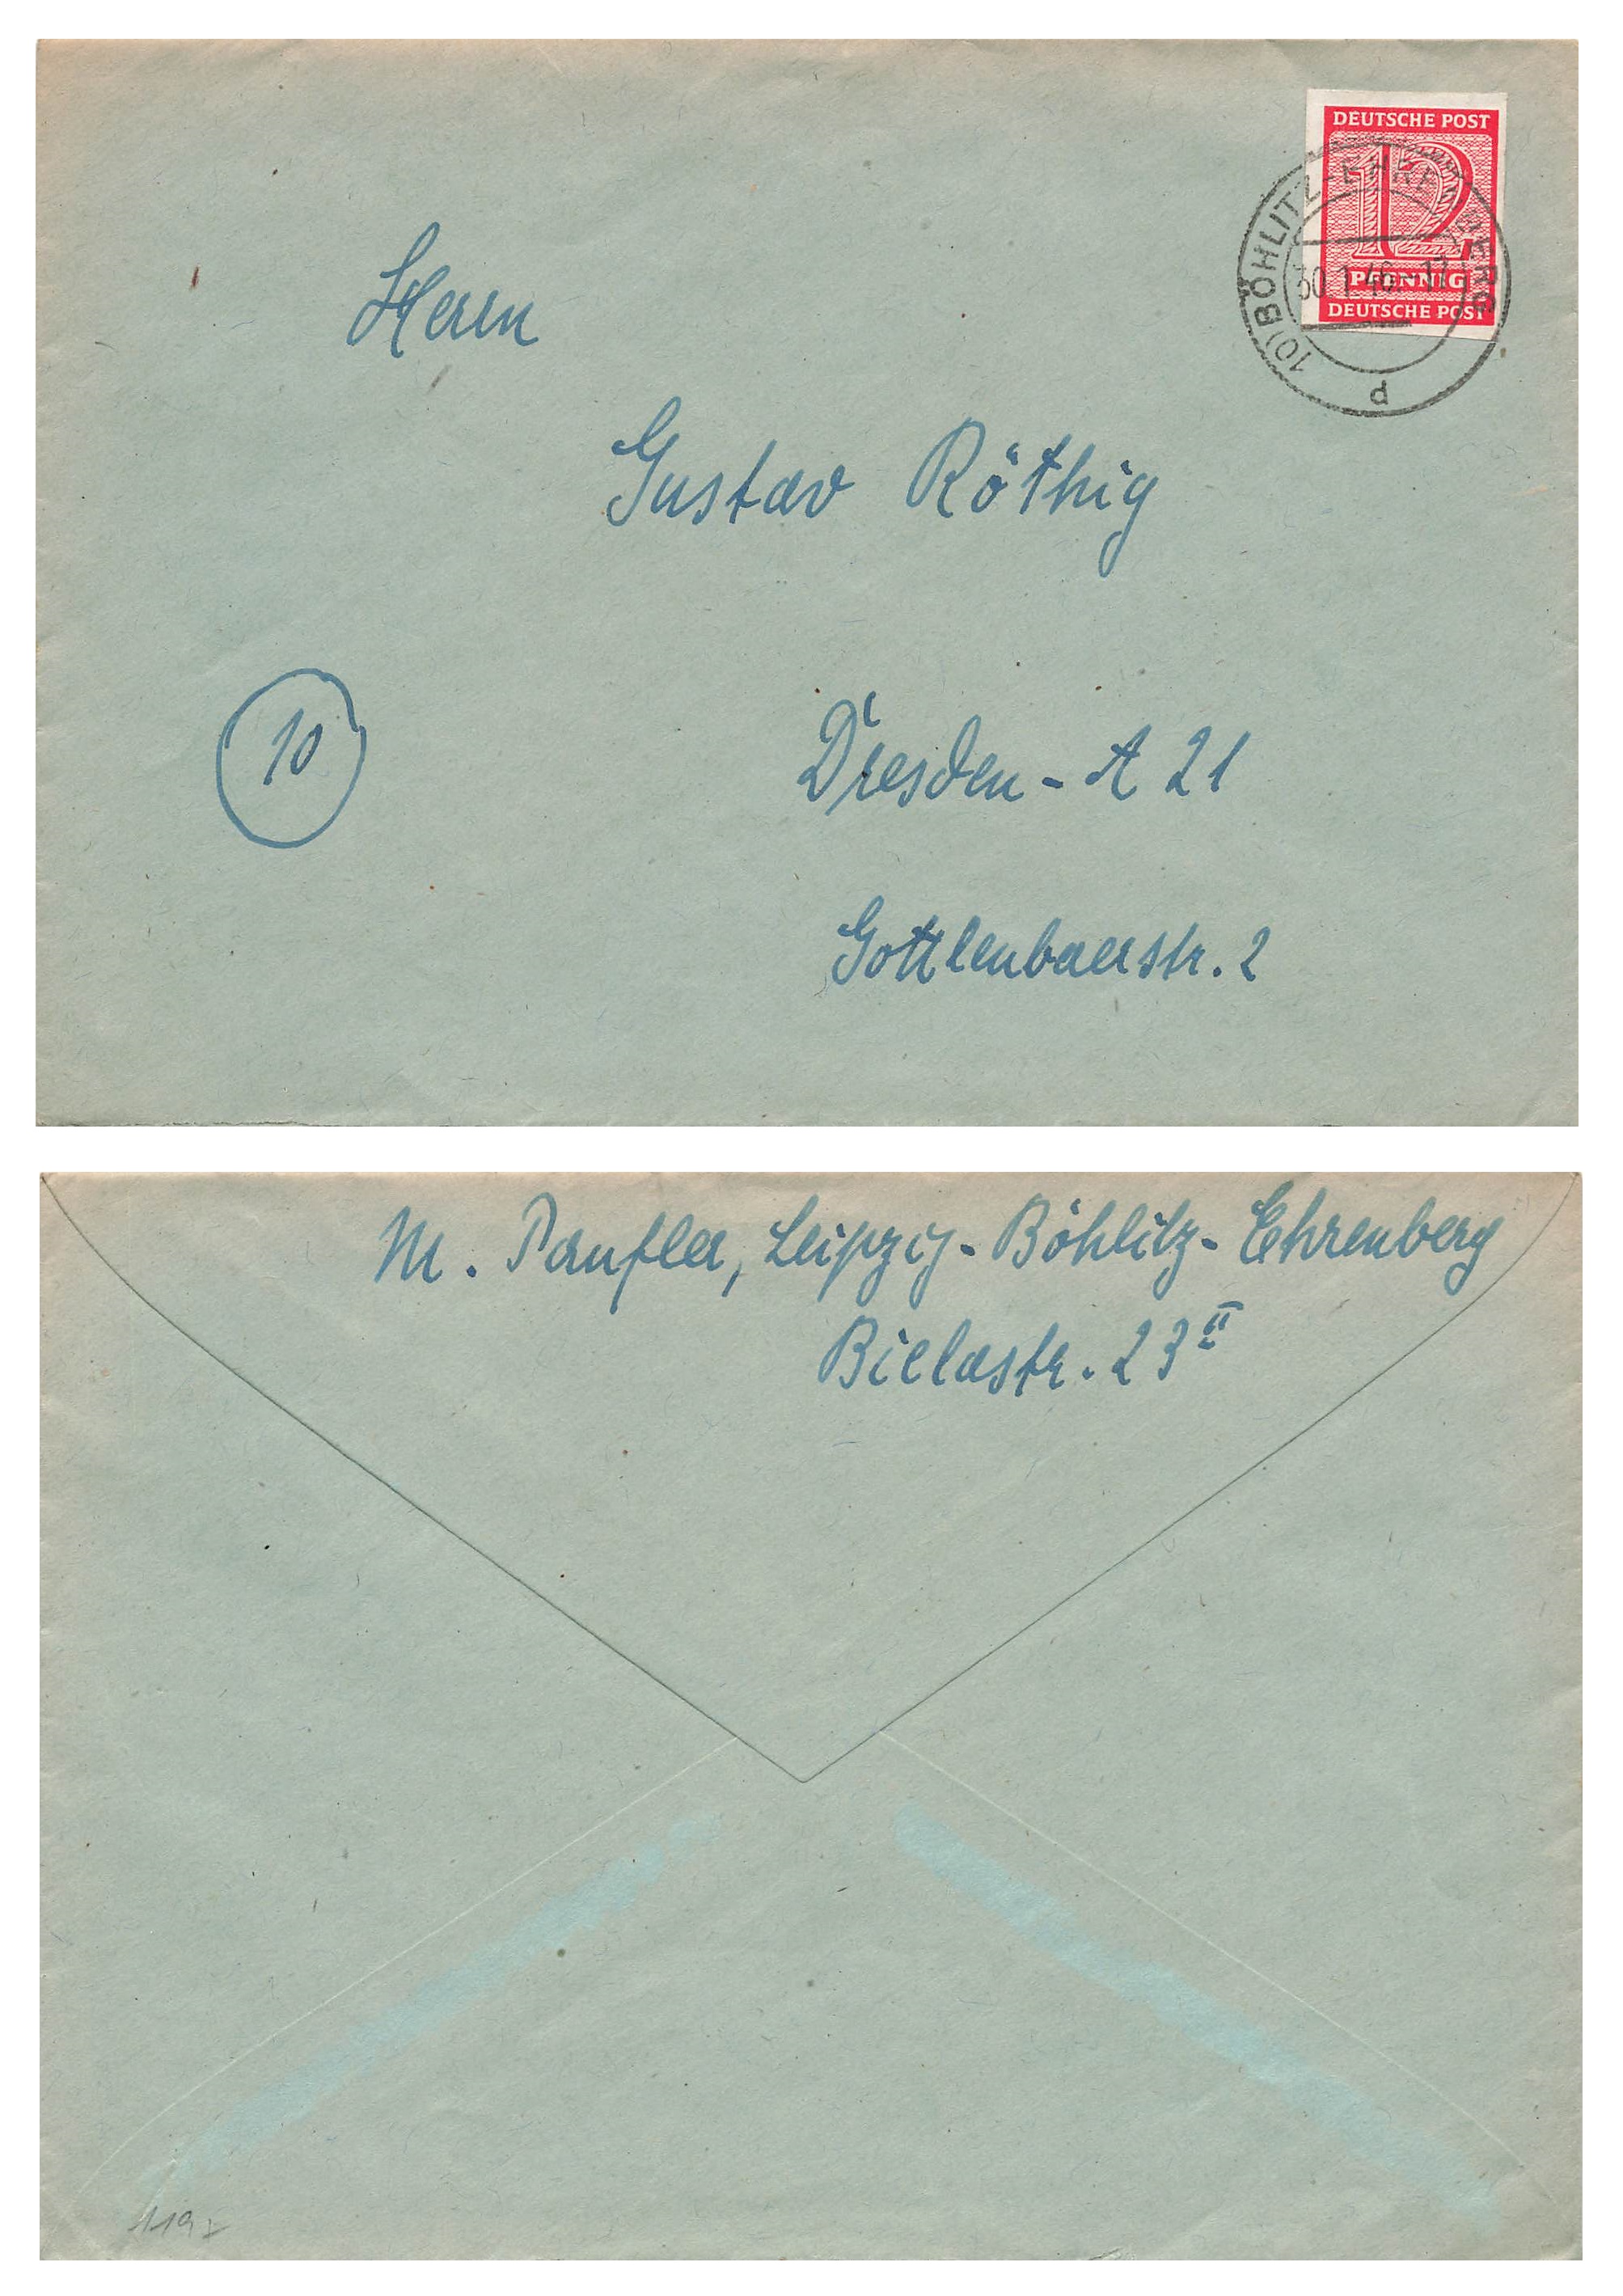 DEUTSCHE POST
12
PFENNIG
DEUTSCHE POST
(10) BÖHLITZ-EHRENBERG
30.1.46.-17
d
Herrn
Gustav Röthig
10
Dresden - A 21
Gottleubaerstr. 2
M. Paufler, Leipzig-Böhlitz-Ehrenberg
Bielastr. 23 II